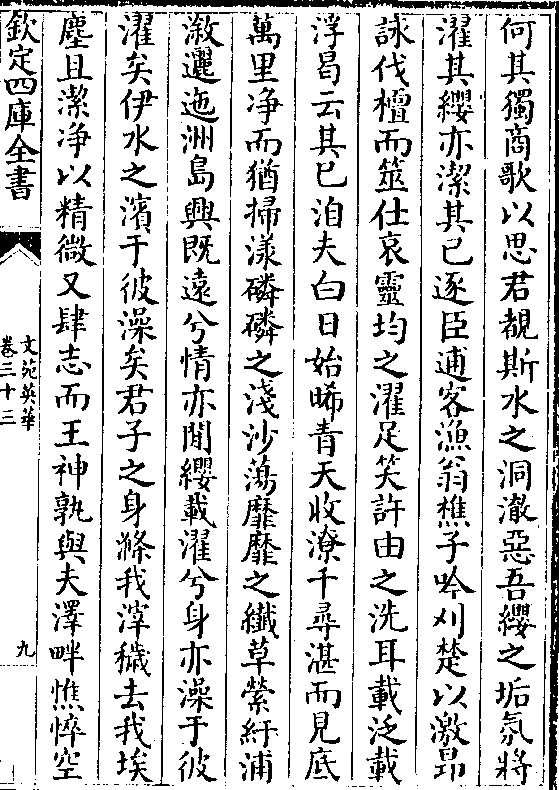 何其獨商歌以思君覩斯水之洞澈惡吾纓之垢氛將
濯其纓亦潔其已逐臣逋客漁翁樵子吟刈楚以激昂
詠伐檀而筮仕哀靈均之濯足笑許由之洗耳載泛載
浮曷云其已洎夫白日始晞青天收潦千尋湛而見底
萬里净而猶掃漾磷磷之淺沙蕩靡靡之纖草縈紆浦
溆邐迤洲島興既遠兮情亦閒纓載濯兮身亦澡于彼
濯矣伊水之濱于彼澡矣君子之身滌我滓穢去我埃
塵且潔净以精微又肆志而王神孰與夫澤畔憔悴空
欽定四庫全書
文苑英華
卷三十三
九